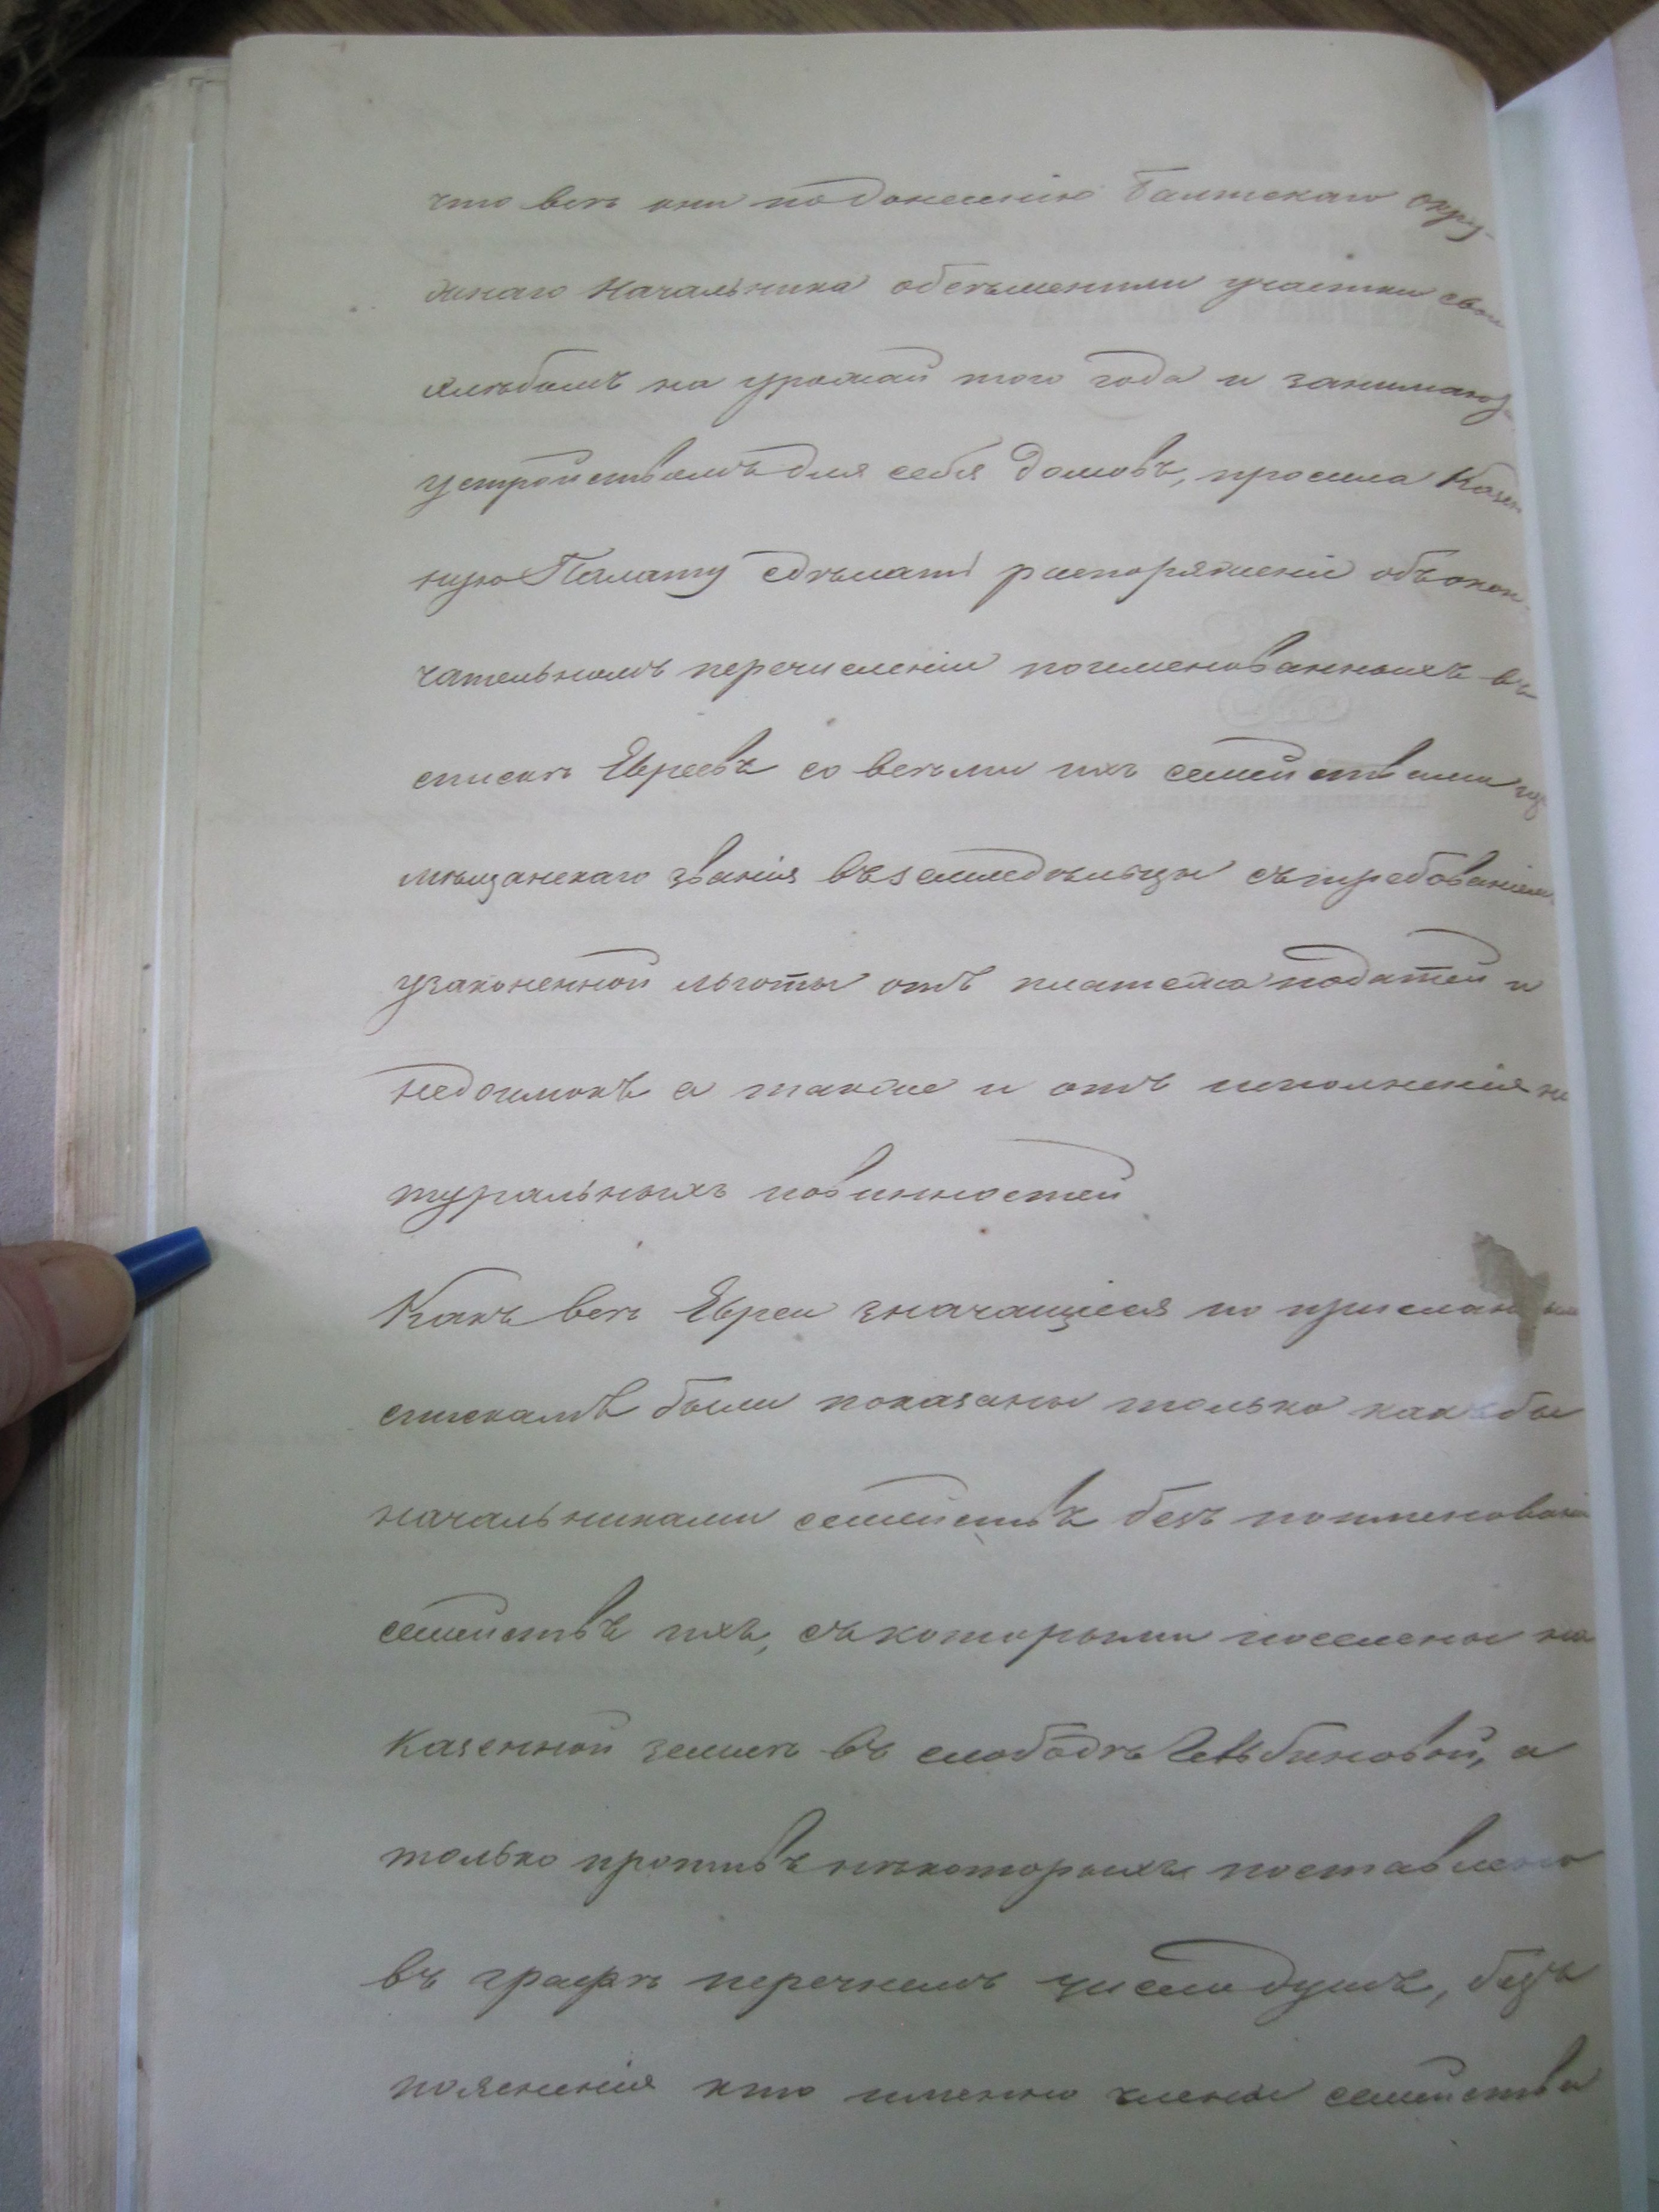 что всѣ они по донесенію Балтскаго окру-
жнаго Начальника обсѣменили участки свои
хлѣбомъ на урожай того года и занимаются
устройствомъ для себя домовъ, просила Казен
ную Палату сдѣлать распоряженіе объ окон-
чательномъ перечисленіи поименованныхъ въ
спискѣ Евреевъ со всѣми ихъ семействами изъ
мѣщанскаго званія въ земледѣльцы съ требованіемъ
узаконенной льготы отъ платежа податей и
недоимокъ а также и отъ исполненія на
туральныхъ повинностей
Какъ всѣ Евреи значащіеся по присланнымъ
спискамъ были показаны только какъ бы
начальниками семействъ безъ поименованія
семействъ ихъ, съ которыми поселены на
казенной землѣ въ слободѣ а
только противъ нѣкоторыхъ поставлено
въ графѣ перечнемъ число душъ, безъ
поясненія кто именно члены семейства